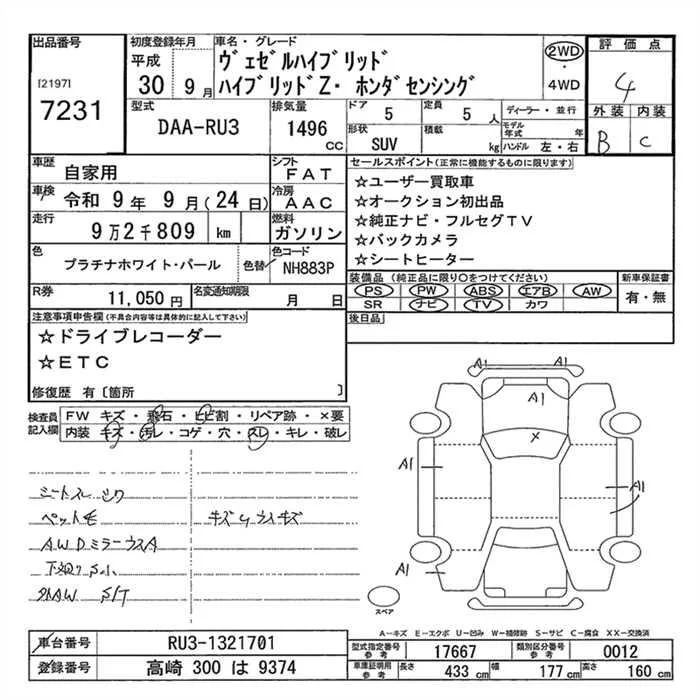 出品番号
[2197]
7231
初度登録年月
平成
30 9 月
車名・グレード
ヴェゼルハイブリッド
ハイブリッドZ・ホンダセンシング
2WD
・
4WD
評価点
4
外装 内装
B C
型式
DAA-RU3
排気量
1496
CC
ドア
5
定員
5 人
形状
SUV
積載
kg
ディーラー・並行
モデル年式 年
ハンドル 左・右
車歴
自家用
シフト
FAT
車検
令和 9 年 9 月(24 日)
冷房
AAC
走行
9万2千809 km
燃料
ガソリン
色
プラチナホワイト・パール
色替
色コード
NH883P
R券
11,050 円
名変通知期限
月 日
セールスポイント(正常に機能するものに限ります)
☆ユーザー買取車
☆オークション初出品
☆純正ナビ・フルセグTV
☆バックカメラ
☆シートヒーター
装備品 (純正品に限り○をつけてください)
PS PW ABS エアB AW
SR ナビ TV カワ
新車保証書
有・無
後日品
注意事項申告欄(不具合内容等は具体的に記入して下さい)
☆ドライブレコーダー
☆ETC
修復歴 有〔箇所 〕
検査員
記入欄
FW キズ・飛石・ヒビ割・リペア跡・×要
内装 キズ・汚レ・コゲ・穴・スレ・キレ・破レ
シートスレ シワ
ペット毛
キズ 4 ウスキズ
AWDミラーウスA
下廻りS小
外AW S/T
A1
A1
A1
×
A1
A1
A1
スペア
A-キズ E-エクボ U-凹み W-補修跡 S-サビ C-腐食 XX-交換済
車台番号
RU3-1321701
登録番号
高崎 300 は 9374
型式指定番号
参考
17667
類別区分番号
参考
0012
車庫証明用
参考
長さ 433 cm
幅 177 cm
高さ 160 cm